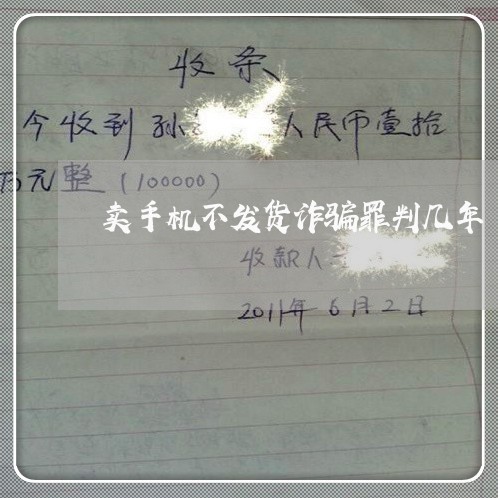 收条
今收到孙 人民币壹拾
万元整（100000）
卖手机不发货诈骗罪判几年
收款人
2011年6月2日